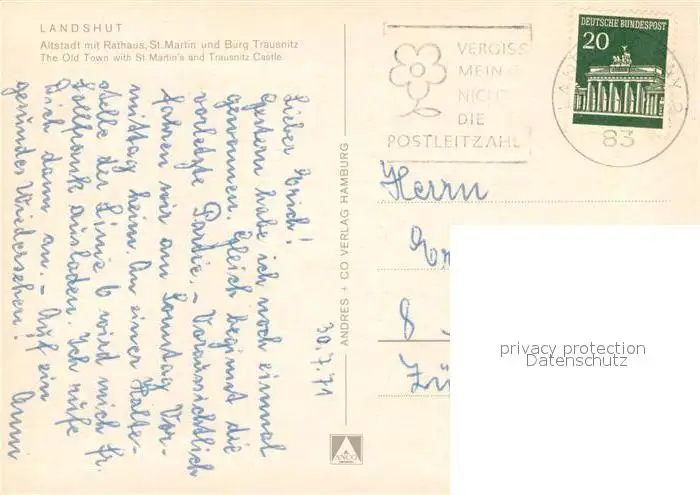 LANDSHUT
Altstadt mit Rathaus, St. Martin und Burg Trausnitz
The Old Town with St. Martin's and Trausnitz Castle
VERGISS
MEIN
NICHT
DIE
POSTLEITZAHL
DEUTSCHE BUNDESPOST
20
83
30.7.71
Lieber Erich!
Gestern habe ich noch einmal
gewonnen. Gleich beginnt die
vorletzte Partie. - Voraussichtlich
fahren wir am Sonntag Vor-
mittag heim. An einer Halte-
stelle der Linie 6 wird mich Fr.
ausladen. Ich rufe
Dich dann an. - Auf ein
gesundes Wiedersehen!
ANDRES + CO VERLAG HAMBURG
ANCO
Herrn
8
privacy protection
Datenschutz